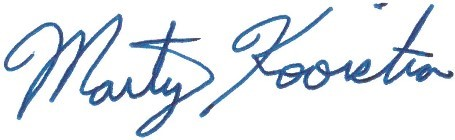 Marty Kooistra